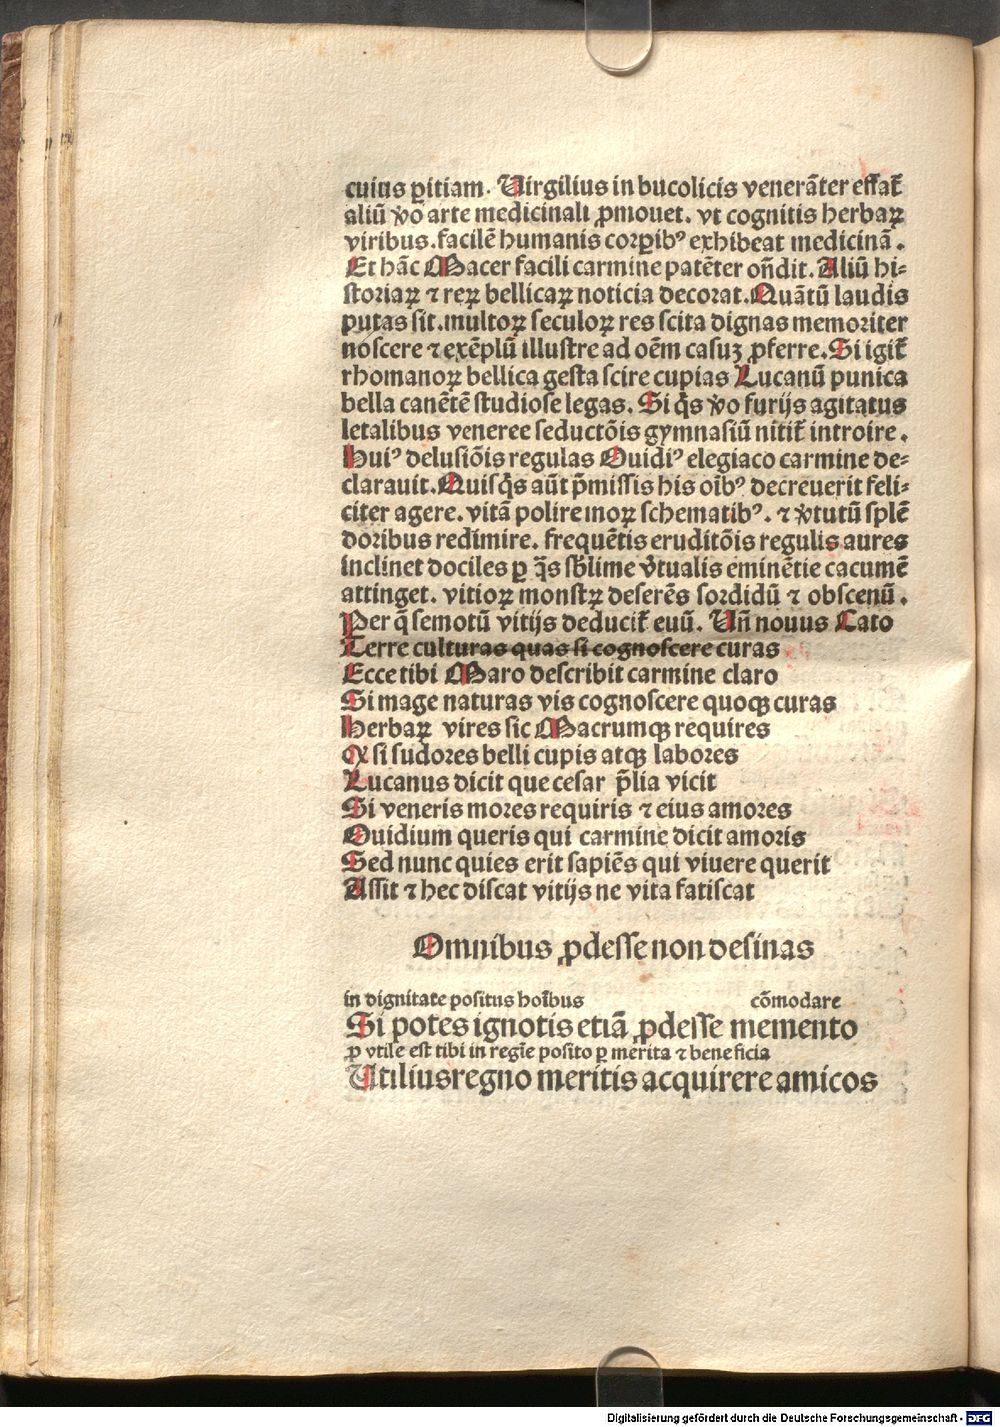 cuius ꝑitiam. Virgilius in bucolicis venerāter effat᷑
aliū ꝟo arte medicinali ꝓmouet. vt cognitis herbaꝝ
viribus. facilē humanis corꝑibꝰ exhibeat medicinā.
Et hāc Macer facili carmine patēter oñdit. Aliū hi⸗
storiaꝝ ⁊ reꝝ bellicaꝝ noticia decorat. Quātū laudis
putas sit. multoꝝ seculoꝝ res scita dignas memoriter
noscere ⁊ exēplū illustre ad oēm casuʒ ꝓferre. Si igit᷑
rhomanoꝝ bellica gesta scire cupias Lucanū punica
bella canētē studiose legas. Si q̄s ꝟo furijs agitatus
letalibus veneree seductōis gymnasiū nitit᷑ introire.
Huiꝰ delusiōis regulas Ouidiꝰ elegiaco carmine de⸗
clarauit. Quisq̄s aūt p̄missis his oībꝰ decreuerit feli⸗
citer agere. vitā polire moꝝ schematibꝰ. ⁊ ꝟtutū splē
doribus redimire. frequētis eruditōis regulis aures
inclinet dociles ꝑ q̄s sb̄lime ꝟtualis eminētie cacumē
attinget. vitioꝝ monstꝝ deserēs sordidū ⁊ obscenū.
Per q̄ semotū vitijs deducit᷑ euū. Vñ nouus Cato
Terre culturas quas si cognoscere curas
Ecce tibi Maro describit carmine claro
Si mage naturas vis cognoscere quoqꝫ curas
Herbaꝝ vires sic Macrumqꝫ requires
Qꝫ si sudores belli cupis atqꝫ labores
Lucanus dicit que cesar p̄lia vicit
Si veneris mores requiris ⁊ eius amores
Ouidium queris qui carmine dicit amoris
Sed nunc quies erit sapiēs qui viuere querit
Assit ⁊ hec discat vitijs ne vita fatiscat
Omnibus ꝓdesse non desinas
in dignitate positus hoībus cōmodare
Si potes ignotis etiā ꝓdesse memento
ꝓ vtile est tibi in regīe posito ꝑ merita ⁊ beneficia
Utilius regno meritis acquirere amicos
Digitalisierung gefördert durch die Deutsche Forschungsgemeinschaft - DFG